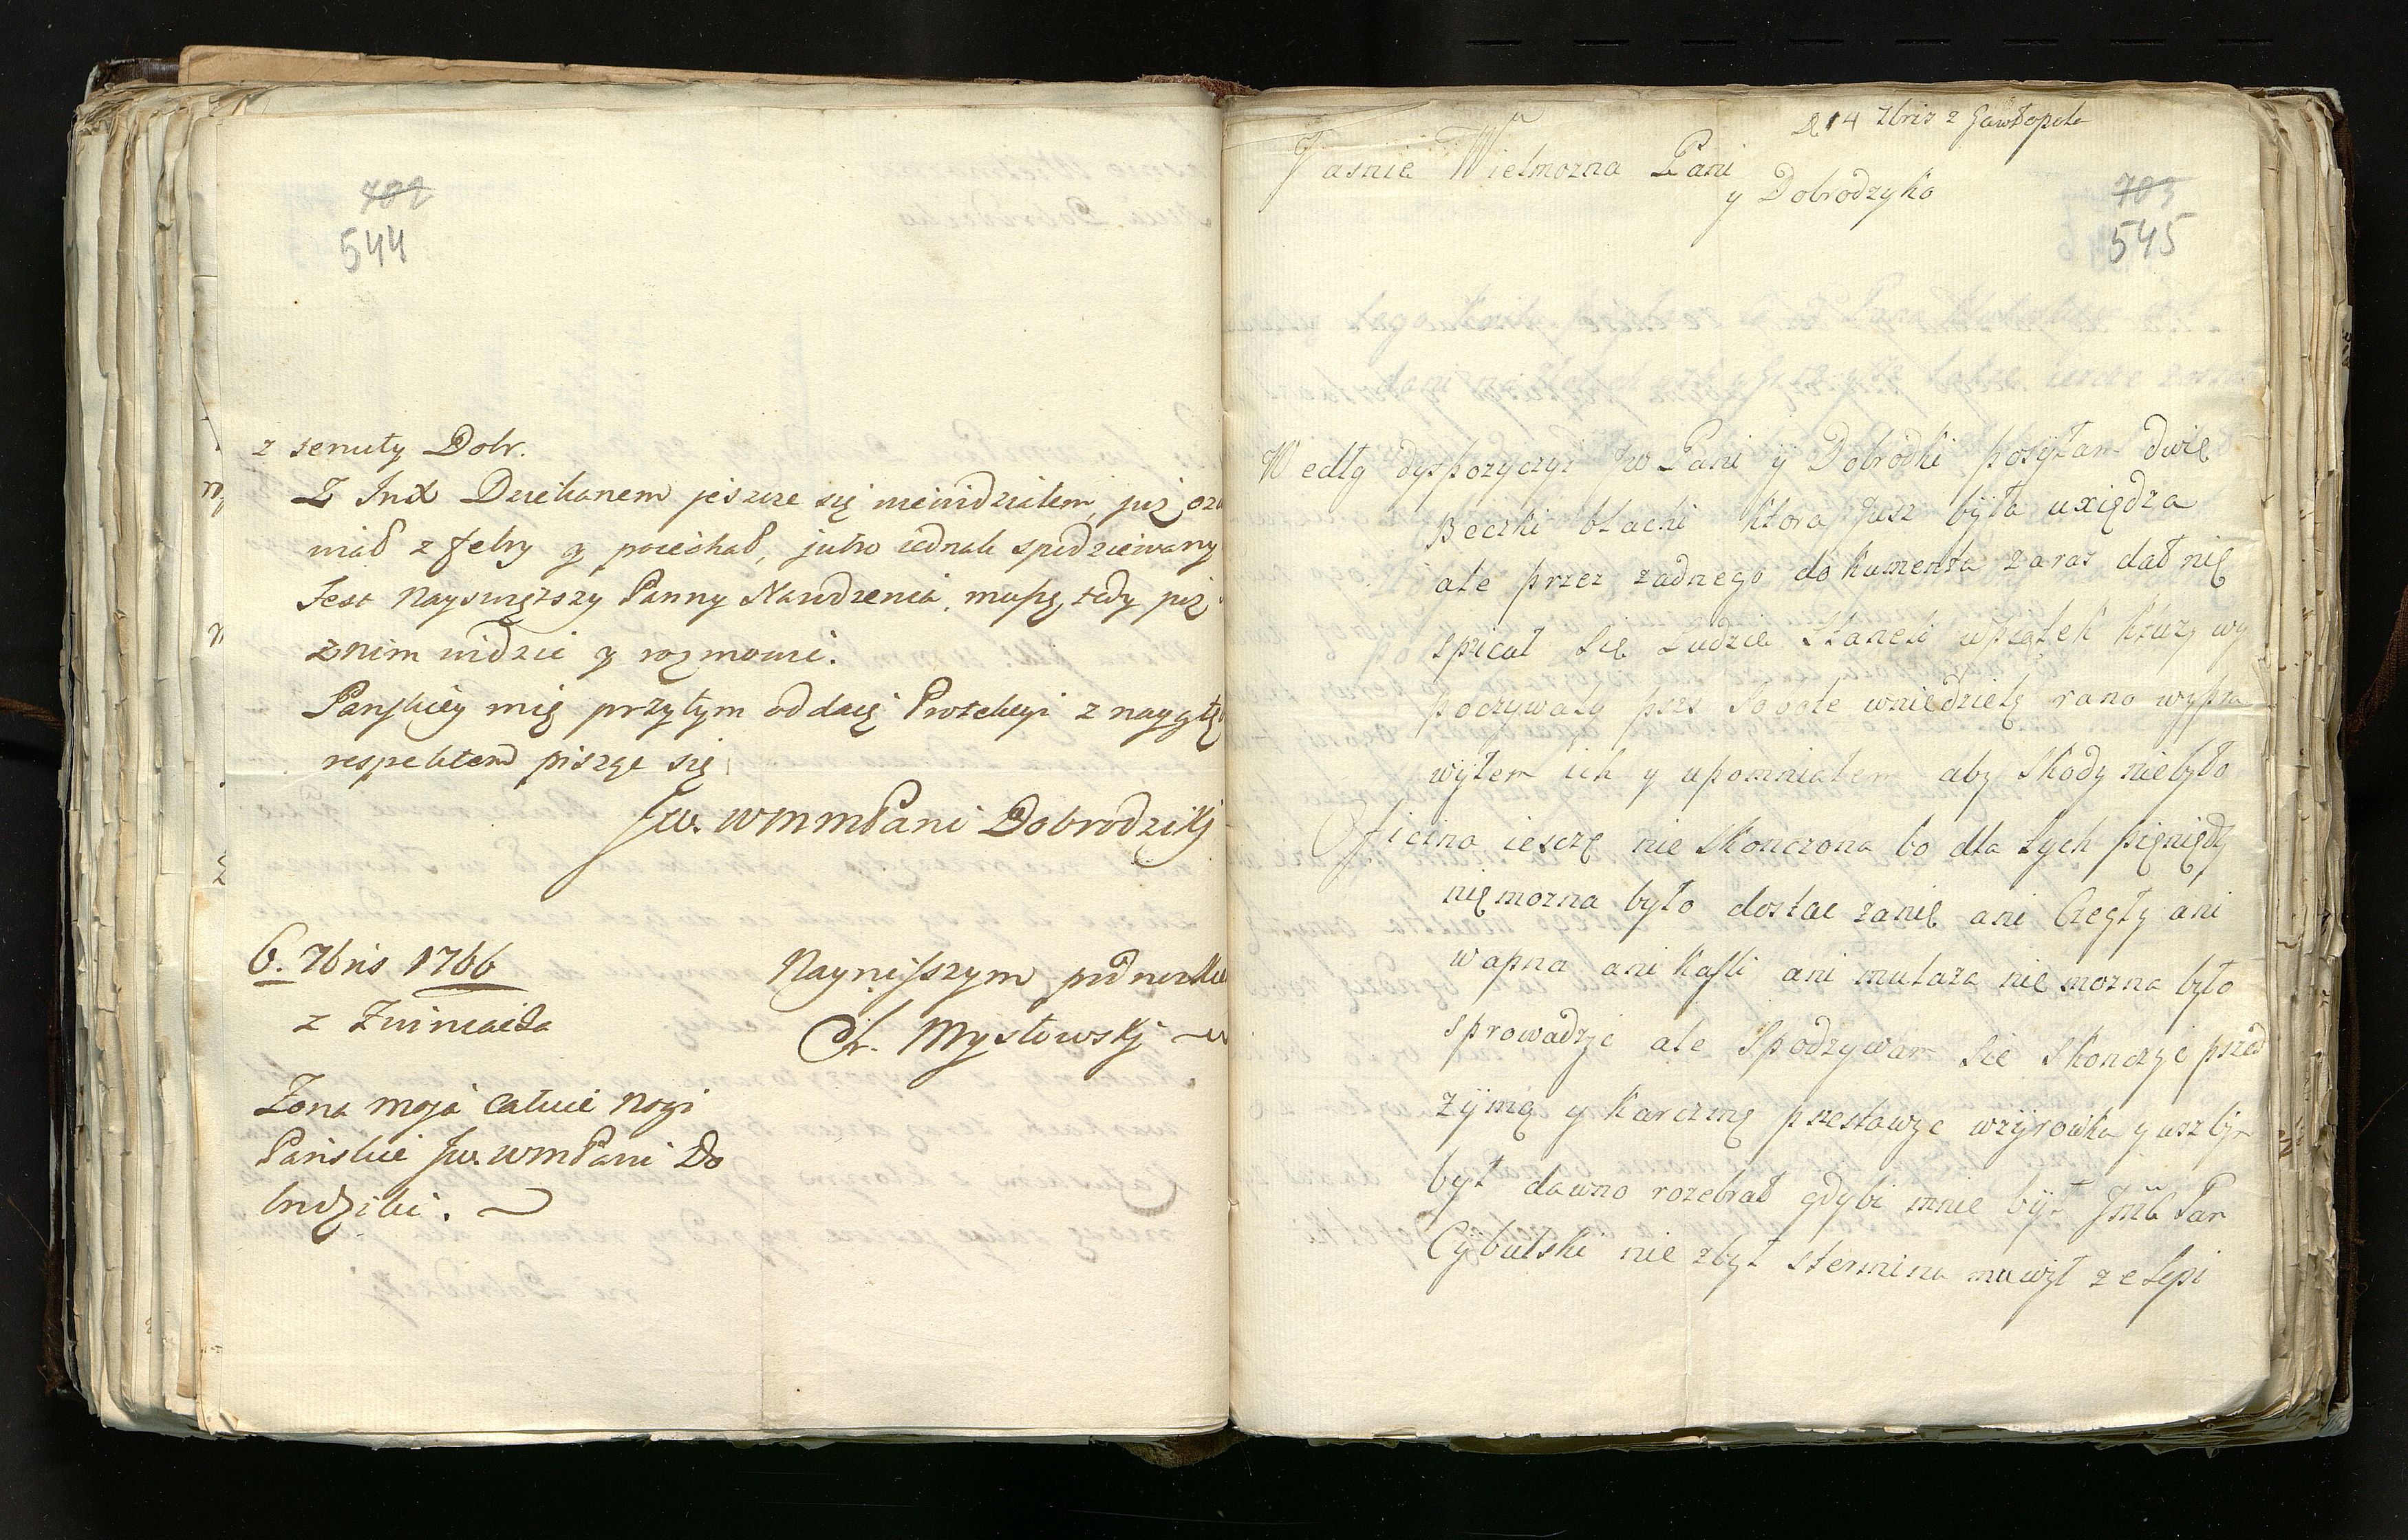 702
544
z senuty Dobr.
Z Imć Dziekanem jeszcze się niewidziałem, już
miał z febry y pojechał, jutro iednak spodziewany
Jest Nayświętszy Panny Narodzenia, muszę tedy już
znim widzić y rozmowić.
Panskiey mię przytym oddaię Protekcyi z naygłę
respektem pisząc się
Jw. WMMPani Dobrodziki
6. 7bris 1766
z Zwiniacza
Nayniższym podnoszkie
Ch. Mysłowskj
Żona moja całuie nogi
Pańskie Jw. WMPani Do
brodziki.
D 14 7bris z Gawłopola
Jasnie Wielmozna Pani
y Dobrodzyko
703
545
Wedłg dyspozyczyi Jw Pani y Dobrodki posyłam dwię
Beczki blachi ktora Jusz byla uxiędza
ale przez zadnego dokumenta zaras dał nię
spieał Się Ludzie Staneli wpiątek kturzy wy
poczywaly przs Sobote wniedzielę rano wypra
wiłem ich y upomniałem aby Skody niebyło
Oficina iesczę nie Skonczona bo dla tych pięniędzy
nięmozna było dostac zanię ani Czegły ani
wapna ani kafli ani mulara nie mozna było
sprowadzic ale Spodzywam Się Skonczyc pszed
zyimą y karczmę psestawyc wzyrowka y uszbym
był dawno rozebrał gdybi mnie był Jmć Pan
Cybulski nie zbył stermina muwył ze lepi